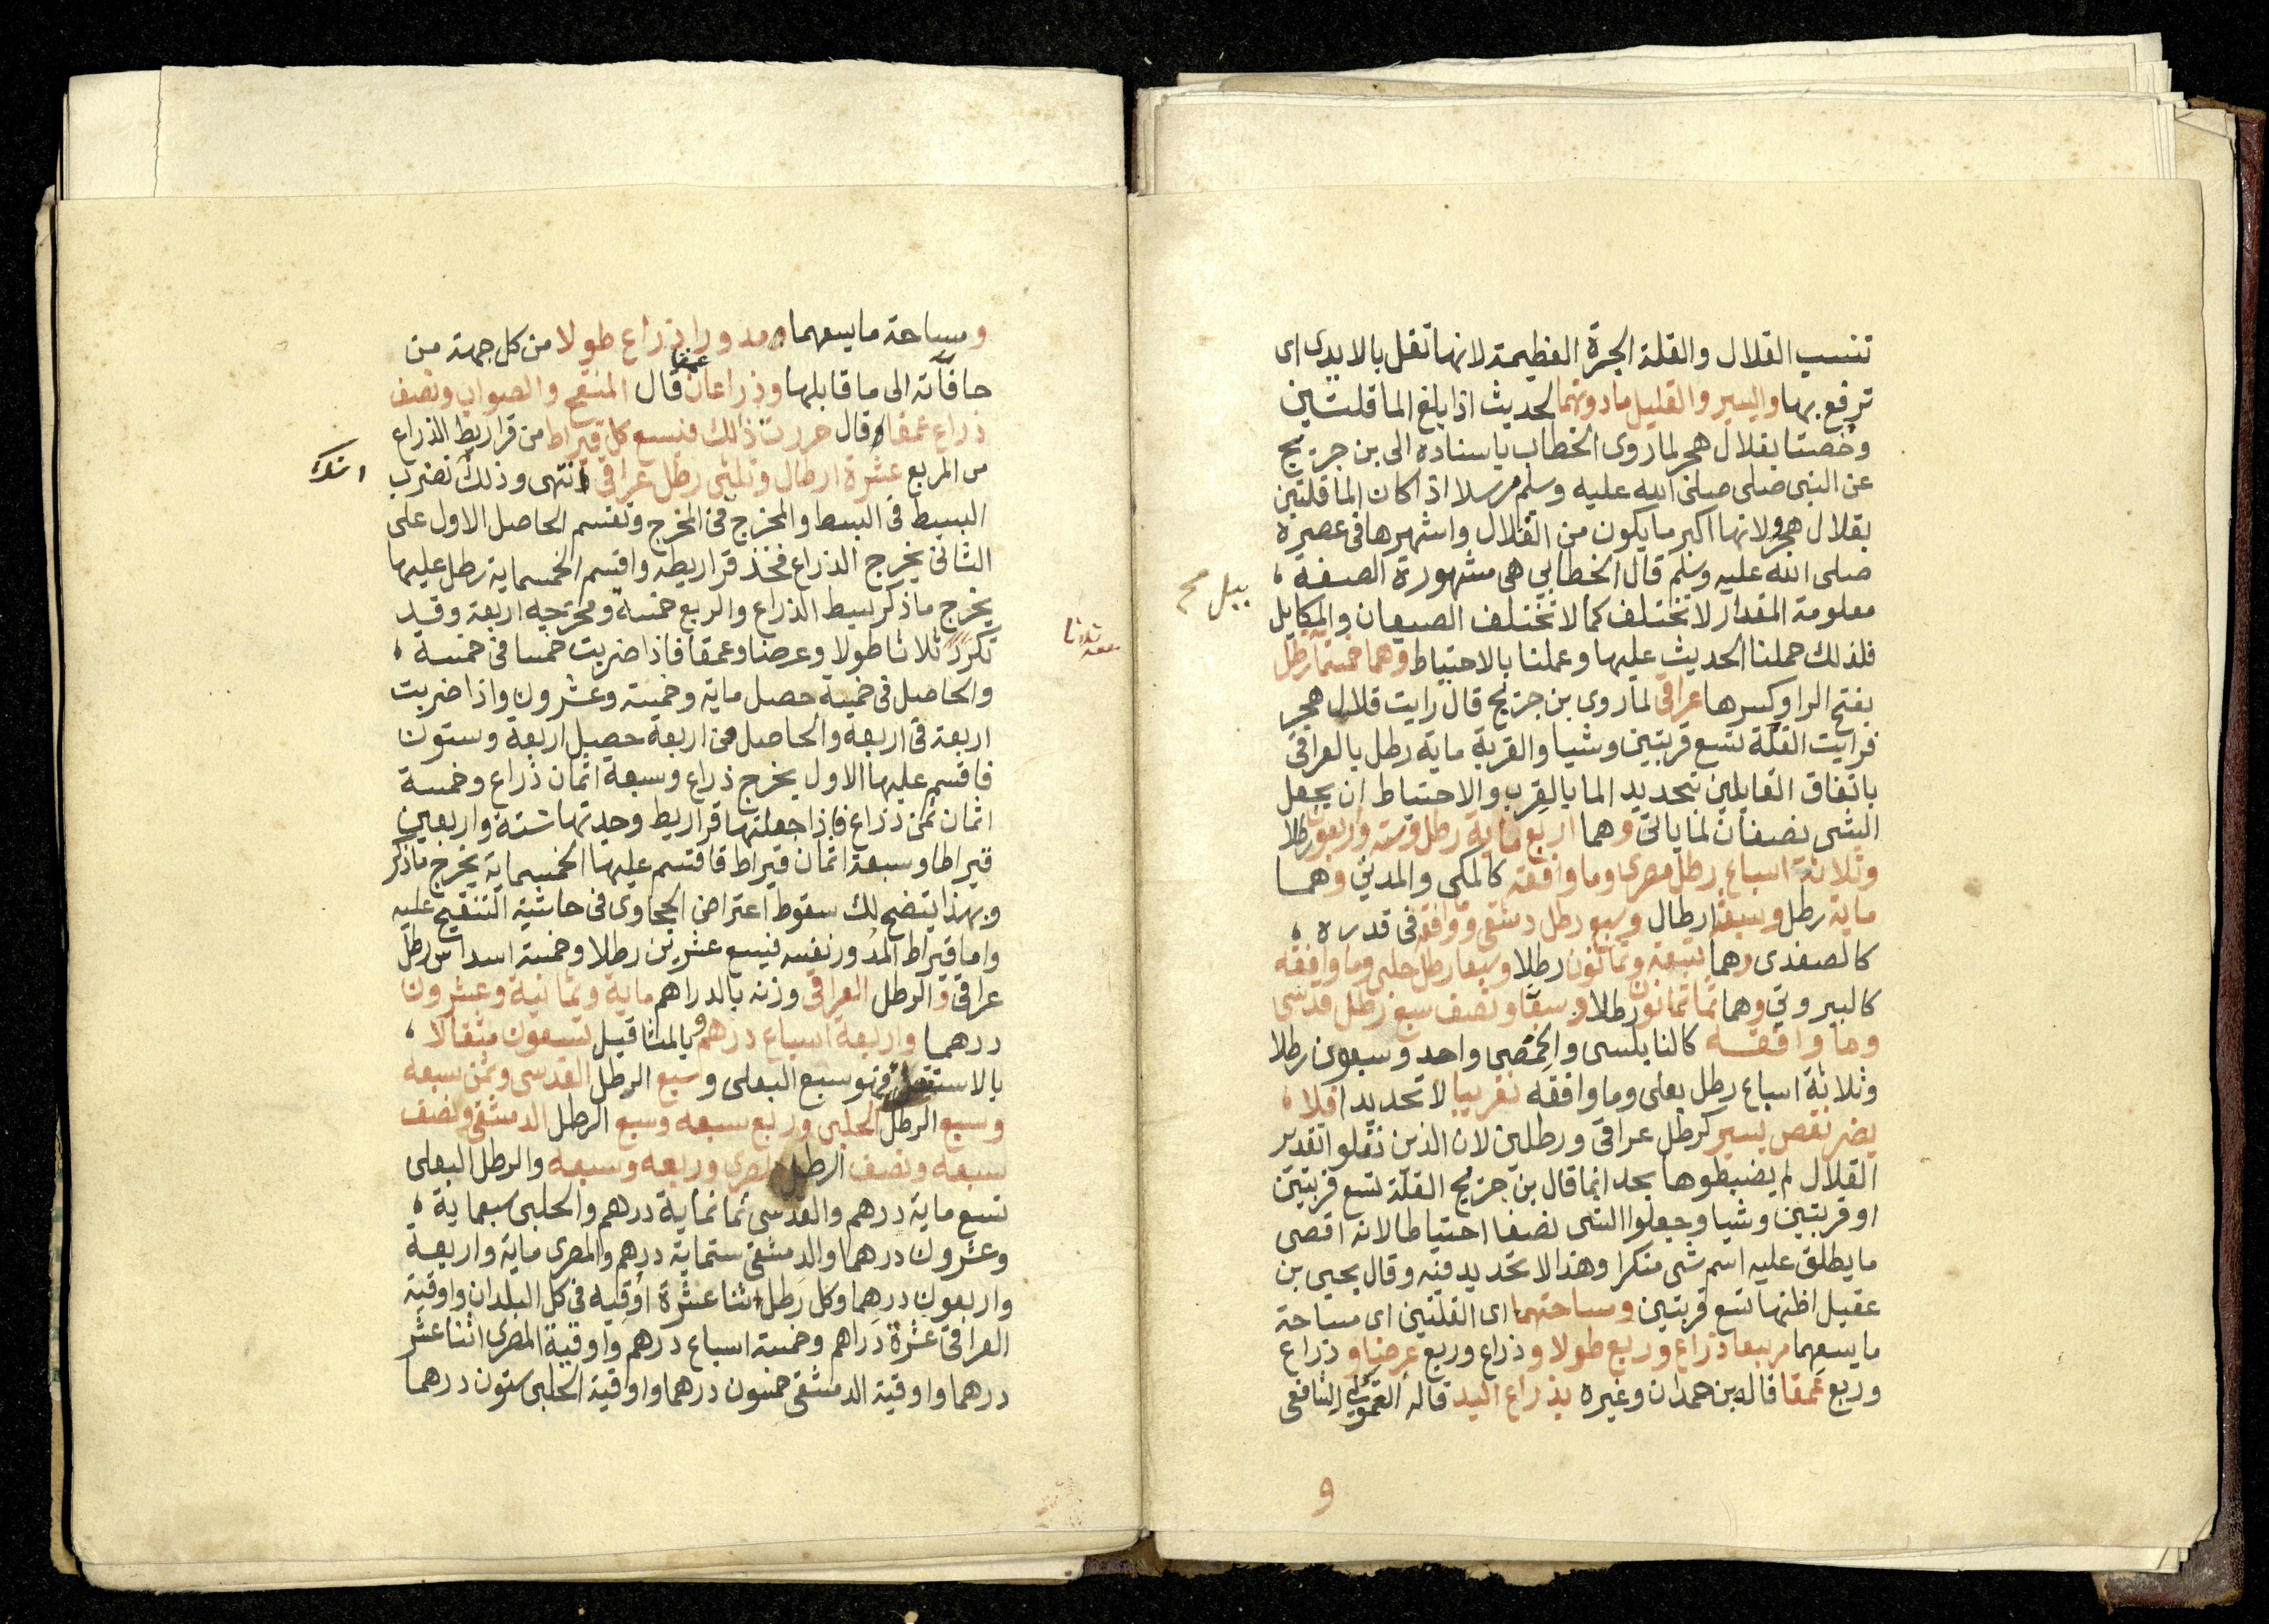 تنسب القلال والقلة الجرة العظيمة لانها تقل بالايدى اى
ترفع بها واليسير والقليل مادونهما لحديث اذا بلغ الما قلتين
وخصتا بقلال هجر لما روى الخطابى باسناده الى بن جريج
عن النبى صلى صلى الله عليه وسلم مرسلا اذا كان الما قلتين
بقلال هجر ولانها اكبر مايكون من القلال واشهرها فى عصره
صلى الله عليه وسلم قال الخطابي هى مشهورة الصفة
معلومة المقدار لا تختلف كما لا تختلف الصيعان والمكايل
فلذلك حملنا الحديث عليها وعملنا بالاحتياط وهما خمسماية رطل
بفتح الرا وكسرها عراقى لما روى بن جريج قال رايت قلال هجر
فرايت القلة تسع قربتين وشيا والقربة ماية رطل بالعراقى
باتفاق القايلين بتحديد الما بالقرب والاحتياط ان يجعل
الشى نصفا لما ياتى وهما اربع ماية رطل وسته واربعون رطلا
وثلاثة اسباع رطل مصرى وما وافقه كالمكى والمدنى وهما
ماية رطل وسبعة ارطال وسبع رطل دمشقى ووافقه فى قدره
كالصفدى وهما تسعة وثمانون رطلا وسبعا رطل حلبى وما وافقه
كالبيروتى وهما ثمانون رطلا وسبعا ونصف سبع رطل قدسى
وما وافقه كالنابلسى والحمصى واحد وسبعون رطلا
وثلاثة اسباع رطل بعلى وما وافقه تقريبا لا تحديدا فلا
يضر نقص يسير كرطل عراقى ورطلين لان الذين نقلوا تقدير
القلال لم يضبطوها بحد انما قال بن جريج القلة تسع قربتين
او قربتين وشيا وجعلوا الشى نصفا احتياطا لانه اقصى
ما يطلق عليه اسم شى منكرا وهذا لا تحديد فيه وقال يحيى بن
عقيل اظنها تسع قربتين ومساحتهما اى القلتين اى مساحة
ما يسعهما مربعا ذراع وربع طولا وذراع وربع عرضا وذراع
وربع عمقا قاله بن حمدان وغيره بذراع اليد قاله القمولى الشافعى
و
ومساحة ما يسعهما مدورا ذراع طولا من كل جهة من
حافاته الى ما قابلها وذراعان عمقا قال المنقح والصواب ونصف
ذراع عمقا وقال حررت ذلك فيسع كل قيراط من قراريط الذراع
من المربع عشرة ارطال وثلثى رطل عراقى انتهى وذلك تضرب
البسيط فى البسط والمخرج فى المخرج وتقسم الحاصل الاول على
الثانى يخرج الذراع فخذ قراريطه واقسم الخمسماية رطل عليها
يخرج ما ذكر بسط الذراع والربع خمسة ومخرجه اربعة وقد
تكرر ثلاثا طولا وعرضا وعمقا فاذا ضربت خمسا فى خمسة
والحاصل فى خمسة حصل ماية وخمسة وعشرون واذا ضربت
اربعة فى اربعة والحاصل فى اربعة حصل اربعة وستون
فاقسم عليها الاول يخرج ذراع وسبعة اثمان ذراع وخمسة
اثمان ثمن ذراع فاذا جعلتها قراريط وجدتها ستة واربعين
قيراطا وسبعة اثمان قيراط فاقسم عليها الخمسماية يخرج ما ذكر
وبهذا يتضح لك سقوط اعتراض الحجاوى فى حاشية التنقيح عليه
واما قيراط المدور نفسه فيسع عشرين رطلا وخمسة اسداس رطل
عراقى والرطل العراقى وزنه بالدراهم ماية وثمانية وعشرون
درهما واربعة اسباع درهم وبالمثاقيل تسعون مثقالا
فهو سبع البعلى وسبع الرطل القدسى وثمن سبعه
وسبع الرطل الحلبى وربع سبعه وسبع الرطل الدمشقى ونصف
سبعه ونصف الرطل المصرى وربعه وسبعه والرطل البعلى
تسع ماية درهم والقدسى ثمانماية درهم والحلبى سبعماية
وعشرون درهما والدمشقى ستماية درهم والمصرى ماية واربعة
واربعون درهما وكل رطل اثنا عشرة اوقية فى كل البلدان واوقية
العراقى عشرة دراهم وخمسة اسباع درهم واوقية المصرى اثنا عشر
درهما واوقية الدمشقى خمسون درهما واوقية الحلبى ستون درهما